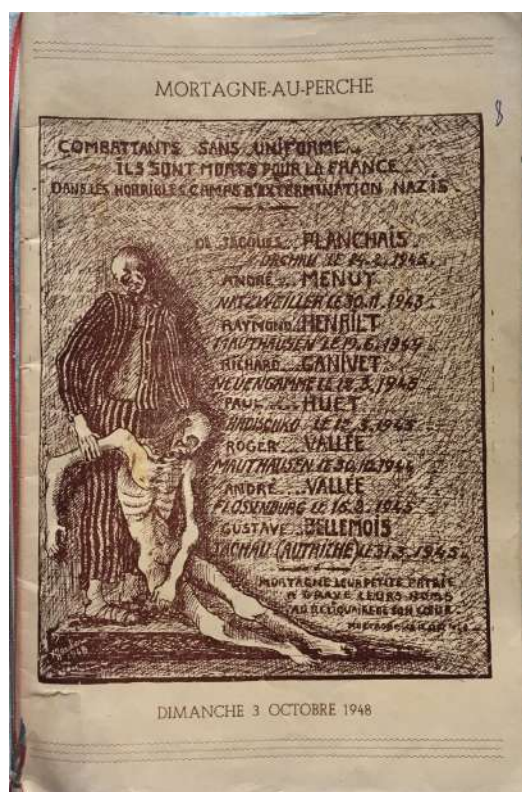 MORTAGNE-AU-PERCHE
8
COMBATTANTS SANS UNIFORME..
ILS SONT MORTS POUR LA FRANCE
DANS LES HORRIBLES CAMPS D'EXTERMINATION NAZIS.
JACQUES... PLANCHAIS
DACHAU LE 14.2.1945.
ANDRÉ... MENUT
NATZWEILLER LE 30.11.1943.
RAYMOND
MAUTHAUSEN LE
RICHARD... GANIVET
NEUENGAMME LE
PAUL... HUET
LE
ROGER... VALLÉE
MAUTHAUSEN LE 30.10.1944
ANDRÉ... VALLÉE
FLOSENBURG LE
GUSTAVE... BELLEMOIS
DACHAU (AUTRICHE) LE 31.3.1945.
MORTAGNE LEUR PETITE PATRIE
A GRAVÉ LEURS NOMS
AU RELIQUAIRE DE SON CŒUR
DIMANCHE 3 OCTOBRE 1948